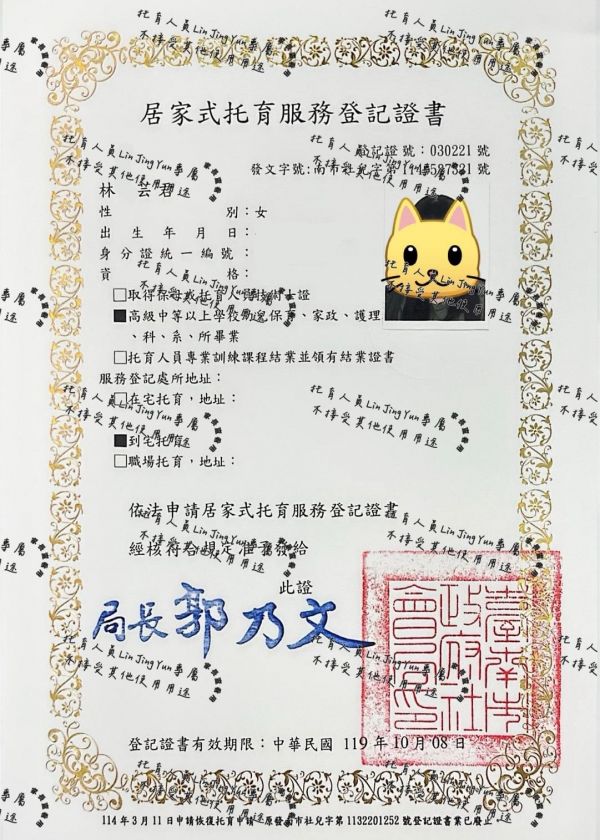 居家式托育服務登記證書
登記證號：030221 號
發文字號：南市社兒字第
林 芸君
性別：女
出生年月日：
身分證統一編號：
資格：
□取得保母或托育人員技術士證
■高級中等以上學校幼兒保育、家政、護理
、科、系、所畢業
□托育人員專業訓練課程結業並領有結業證書
服務登記處所地址：
□在宅托育，地址：
■到宅托育
□職場托育，地址：
依法申請居家式托育服務登記證書
經核符合規定准予發給
此證
局長 郭乃文
臺南市政府社會局印
登記證書有效期限：中華民國 119 年 10 月 08 日
114 年 3 月 11 日申請恢復托育申請，原發南市社兒字第 1132201252 號登記證書業已廢止
托育人員Lin Jing Yun專屬
不接受其他使用用途